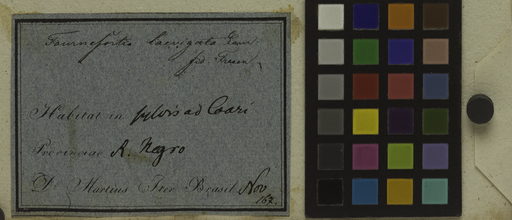 Tournefortia laevigata Lam.
fid. Fresen.
Habitat in sylvis ad Coari
Provinciae R. Negro
D. Martius Iter Brasil. Nov